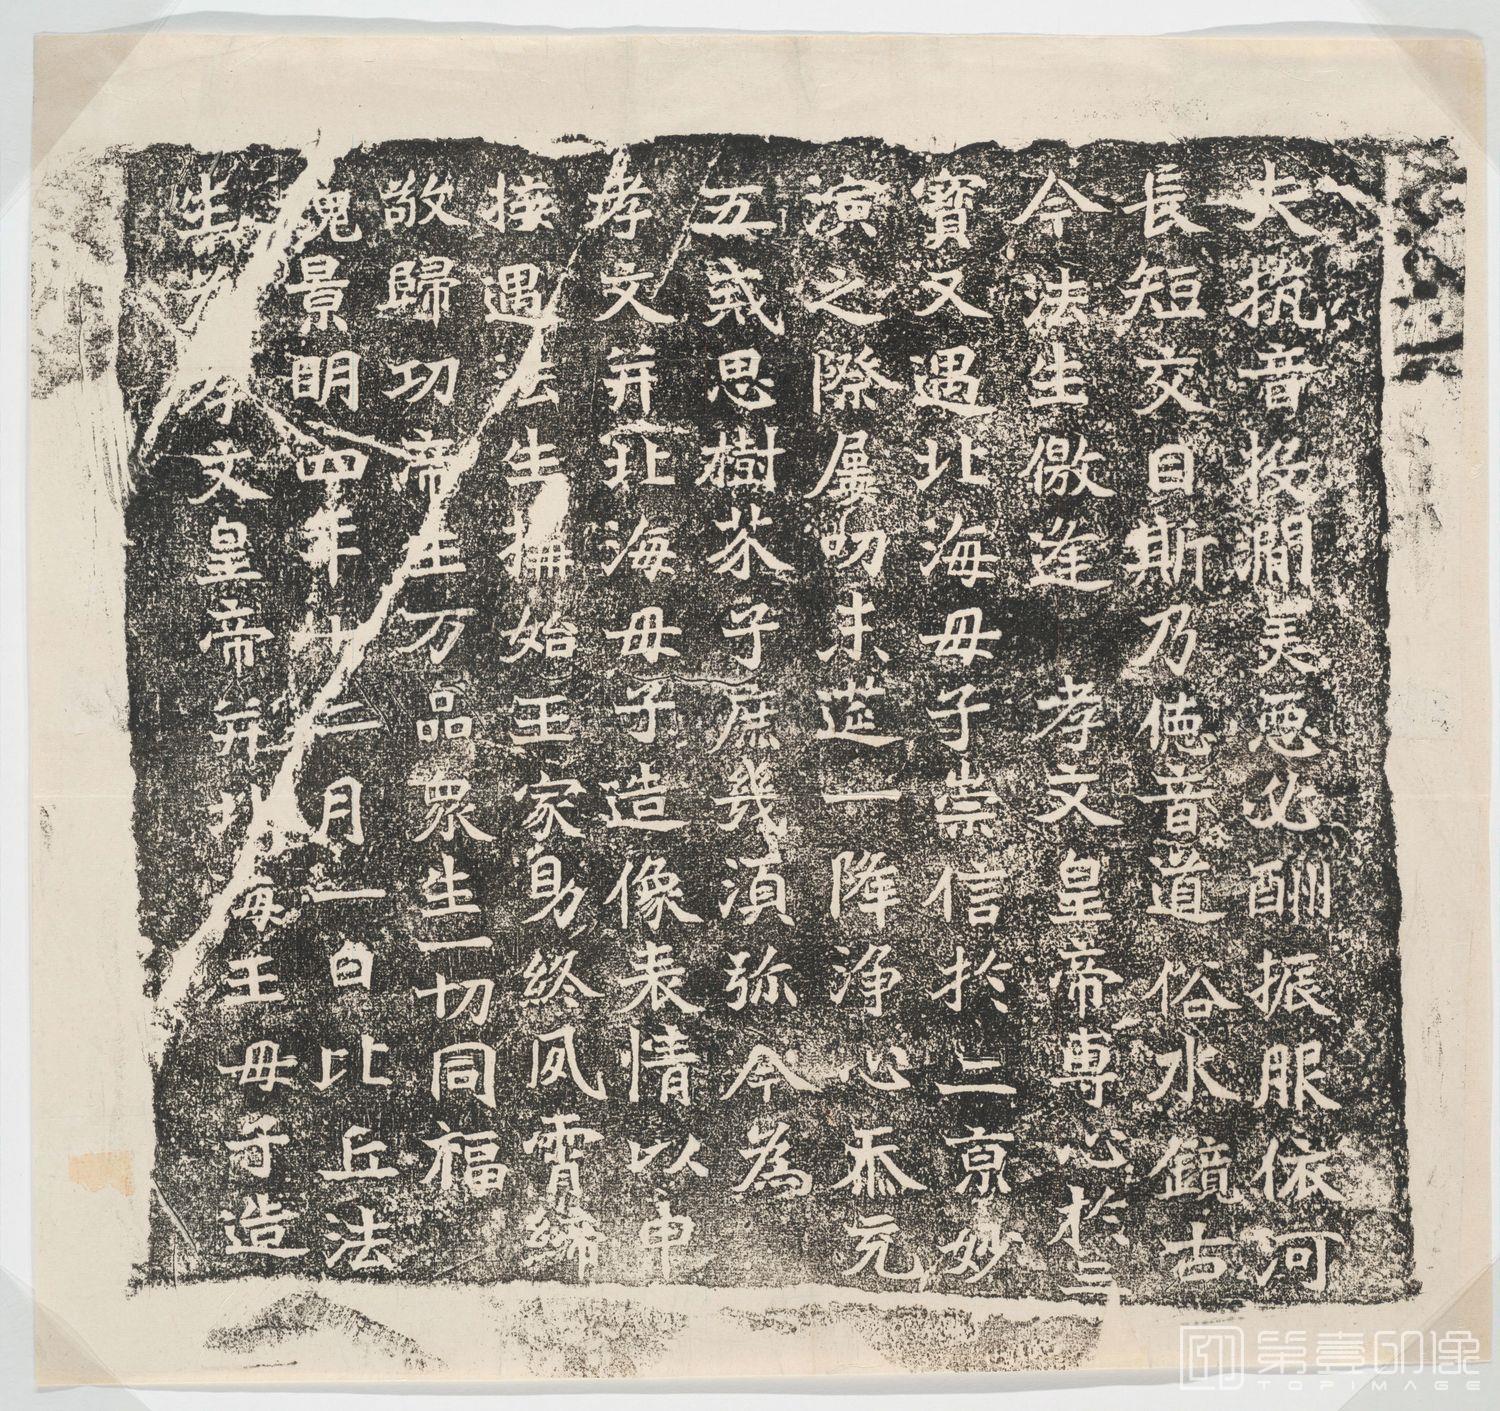 夫抗音投澗美惡必酬振服依河
長短交目斯乃德音道俗水鏡古
今法生儌逢孝文皇帝專心於三
寶又遇北海母子崇信於二京妙
演之際屢叨末筵一降淨心忝充
五戒思樹芥子庶幾須弥今為
孝文并北海母子造像表情以申
接遇法生構始王家助終夙霄締
敬歸功帝王万品衆生一切同福
魏景明四年十二月一日比丘法
生為孝文皇帝并北海王母子造
第壹印像
TOPIMAGE